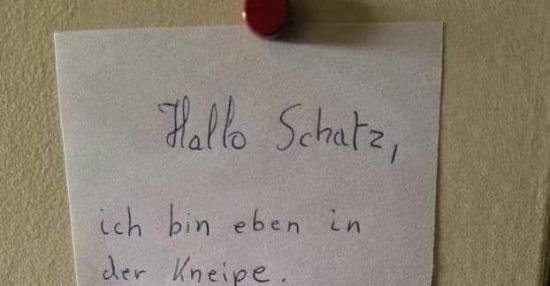 Hallo Schatz,
ich bin eben in
der Kneipe.